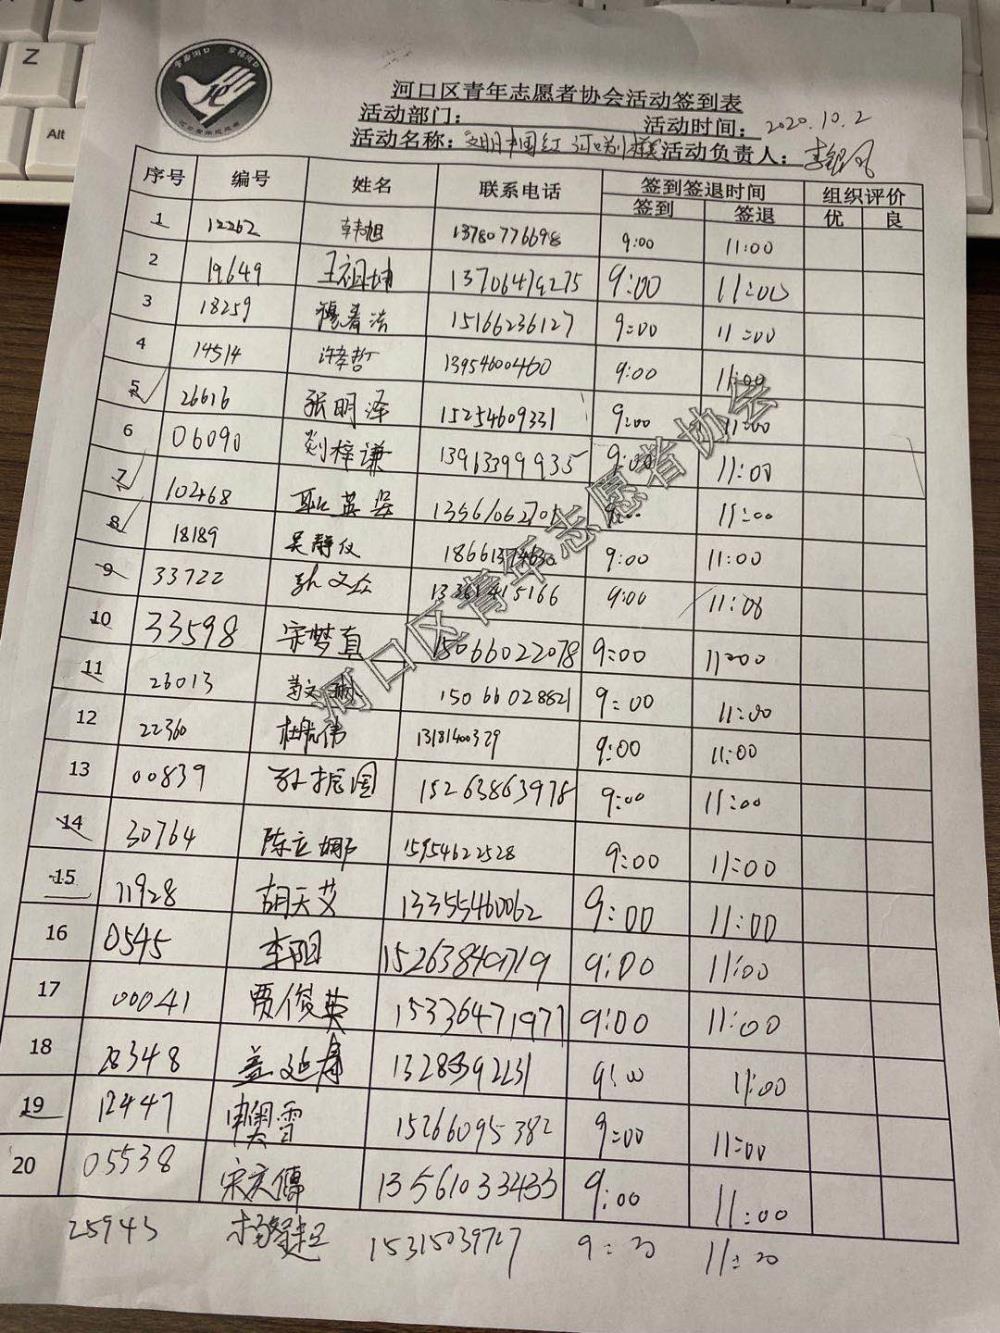 河口区青年志愿者协会活动签到表
活动部门： 活动时间：2020.10.2
活动名称：文明中国红 活动负责人：李银风
序号 编号 姓名 联系电话 签到签退时间 组织评价
签到 签退 优 良
1 12262 韩旭 13780776698 9:00 11:00
2 19649 王祖坤 13706479275 9:00 11:00
3 18259 穆春法 15166236127 9:00 11:00
4 14514 许孝哲 13954600460 9:00 11:00
5 26616 张明泽 15254609331 9:00 11:00
6 06090 刘梓谦 13963399935 9:00 11:00
7 102468 耿英姿 9:00 11:00
8 18189 吴静仪 9:00 11:00
9 33722 孙文众 9:00 11:00
10 33598 宋梦真 15066022078 9:00 11:00
11 26013 15066028821 9:00 11:00
12 22360 杜航伟 13181400329 9:00 11:00
13 00839 孙振国 15263863978 9:00 11:00
14 30764 陈立娜 15954622528 9:00 11:00
15 11928 胡天艾 13355460062 9:00 11:00
16 0545 李阳 9:00 11:00
17 00041 贾俊英 15336471977 9:00 11:00
18 28348 盖延春 9:00 11:00
19 12447 申奥雪 15266095382 9:00 11:00
20 05538 宋庆傅 13561033433 9:00 11:00
25943 15315039727
河口区青年志愿者协会
Z
Alt